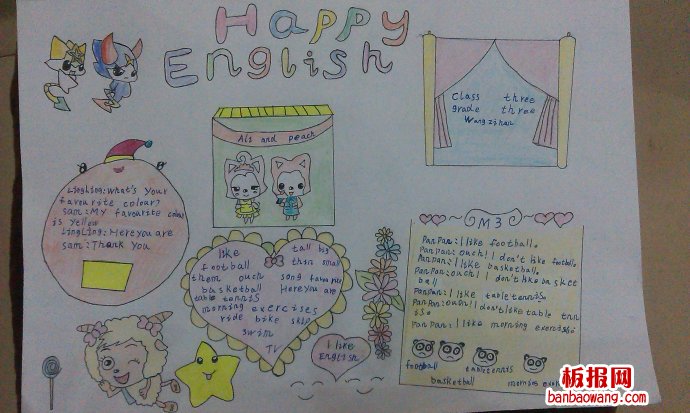 Happy
English
Class three
grade three
Wangzihan
Ali and peach
LingLing:what's your
favourite colour?
Sam:My favourite colour
is yellow
LingLing:Here you are
Sam:Thank you
like tall big
football thin small
them ouch song favourite
basketball Here you are
table tennis
morning exercises
ride bike skip
swim
TV
I like
English
M3
Panpan:I like football.
Panpan:ouch!I don't like football.
Panpan:I like basketball.
Panpan:ouch!I don't like basket
ball
Panpan:I like table tennis.
Panpan:ouch!I don't like table tnn
is.
Panpan:I like morning exercises
football
table tennis
basketball
morning
板报网
banbaowang.com